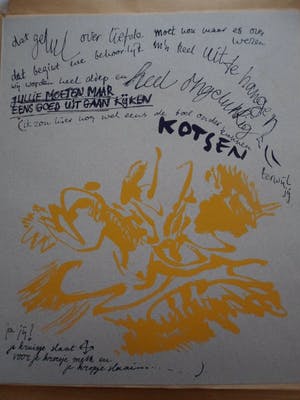 dat gelul over liefde moet nou maar es over wezen
dat begint me behoorlijk m'n keel uit te hangen
wij worden heel diep en heel ongelukkig
JULLIE MOETEN MAAR
EENS GOED UIT GAAN KIJKEN
(ik zou hier nog wel eens de boel onder kunnen
KOTSEN
terwijl
jij
ja jij!
je kruisje slaat
voor je kropje en
je kropje slaai....
)